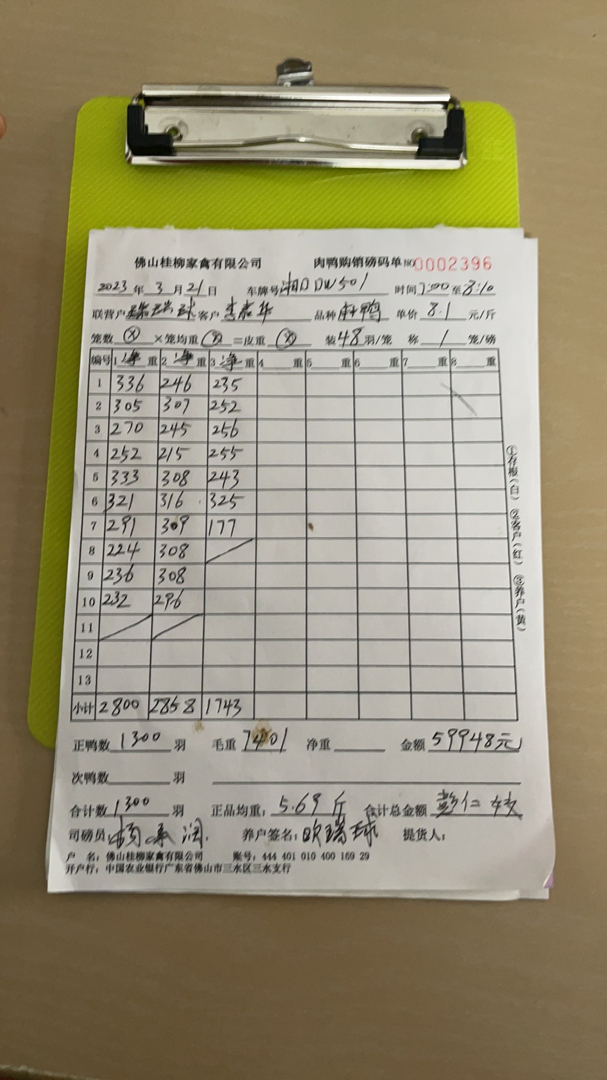 佛山桂柳家禽有限公司 肉鸭购销磅码单 NO 0002396
2023 年 3 月 21 日 车牌号 湘D DW501 时间 7:00 至 8:10
联营户 瑞球 客户 李 华 品种 鸭 单价 8.1 元/斤
笼数 ⊗ ×笼均重 ⊗ =皮重 ⊗ 装 48 羽/笼 称 1 笼/磅
编号 1 净 重 2 净 重 3 净 重 4 重 5 重 6 重 7 重 8 重
1 336 246 235
2 305 307 252
3 270 245 256
4 252 215 255
5 333 308 243
6 321 316 325
7 291 309 177
8 224 308
9 236 308
10 232 296
11
12
13
小计 2800 2858 1743
正鸭数 1300 羽 毛重 7401 净重 金额 59948元
次鸭数 羽
合计数 1300 羽 正品均重: 5.69 斤 合计总金额 彭仁
司磅员 杨 润 养户签名: 欧瑞球 提货人:
户 名: 佛山桂柳家禽有限公司 账号: 444 401 010 400 169 29
开户行: 中国农业银行广东省佛山市三水区三水支行
①存根(白) ②客户(红) ③养户(黄)